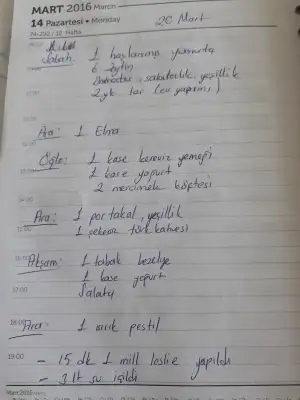 MART 2016 March
14 Pazartesi • Monday
20 Mart
74-292 / 12. Hafta
Sabah: 1 haşlanmış yumurta
6 zeytin
Domates, salatalık, yeşillik
(ev yapımı)
Ara: 1 Elma
Öğle: 1 kase kereviz yemeği
1 kase yoğurt
2 mercimek köftesi
14:00
Ara: 1 portakal, yeşillik
15:00
1 şekersiz türk kahvesi
16:00
Akşam: 1 tabak bezelye
1 kase yoğurt
17:00
Salata
18:00
Ara: 1 erik pestil
19:00
- 15 dk 1 mill leslie yapıldı
- 3 lt su içildi
Mart 2016